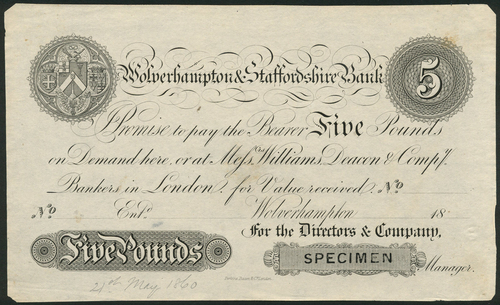 Wolverhampton & Staffordshire Bank
5
I Promise to pay the Bearer Five Pounds
on Demand here, or at Messrs. Williams, Deacon & Compy.
Bankers in London, for Value received. No
No Entd. Wolverhampton 18
For the Directors & Company,
Five Pounds SPECIMEN Manager.
21st May 1860